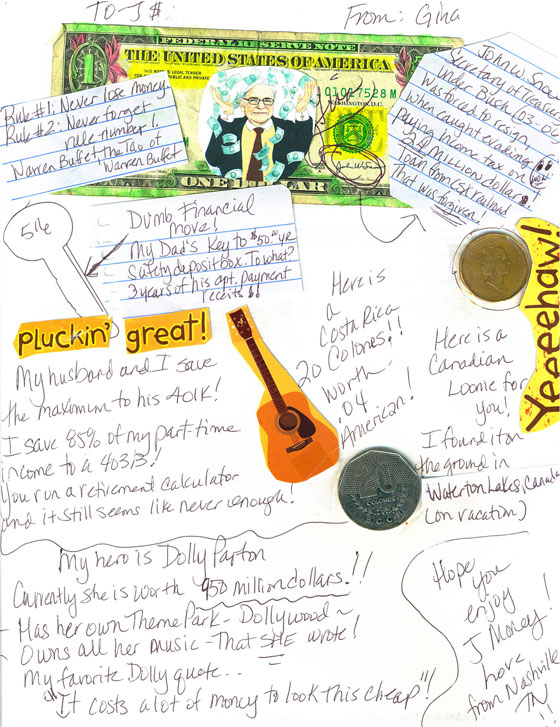 TO-J$:
From: Gina
FEDERAL RESERVE NOTE
THE UNITED STATES OF AMERICA
THIS NOTE IS LEGAL TENDER
WASHINGTON, D.C.
ONE DOLLAR
Rule #1: Never lose money.
Rule #2: Never forget
rule number 1
Warren Buffet - The Tao of
Warren Buffet
John W. Snow
Secretary of Treas
Under Bush (03-0
Was forced to resign
when caught evading
Paying Income tax on a
24 Million dollar
loan from CSX Railroad
That was forgiven.
Dumb Financial
move!
My Dad's Key to $50.00 ye
Safety deposit box. To what?
3 years of his apt. payment
receits!!
pluckin' great!
Yeeeeehaw!
My husband and I save
the maximum to his 401K!
I save 85% of my part-time
income to a 403B!
You run a retirement calculator
and it still seems like never enough!
Here is
a
Costa Rica
20 Colones!!
worth
.04
American!
Here is a
Canadian
Loonie for
you!
I found it on
the ground in
Waterton Lakes, Canada
(on vacation)
My hero is Dolly Parton
Currently she is worth 950 million dollars.!!
- Has her own Theme Park - Dollywood ~
- Owns all her music - That SHE wrote!
My favorite Dolly quote..
"It costs a lot of money to look this cheap"!!
Hope you
enjoy!
J Money!
love
from Nashville
TN